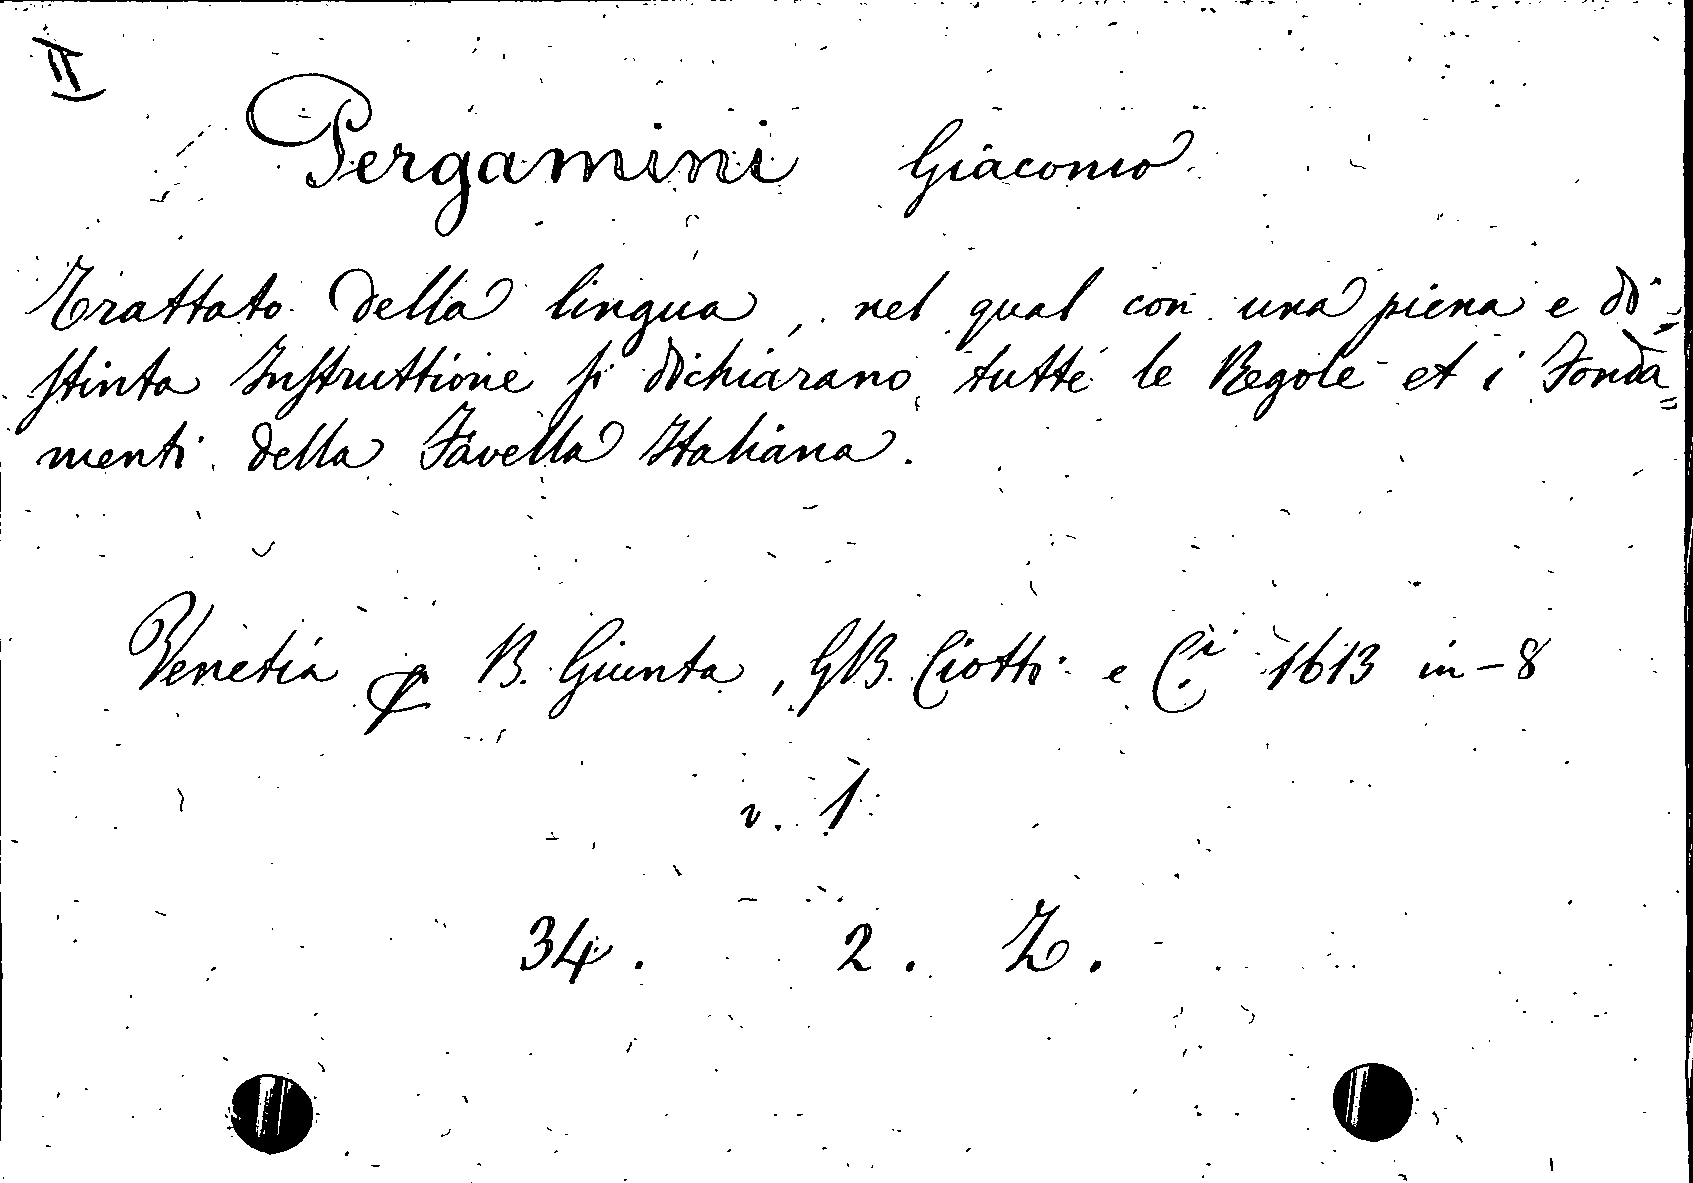 II
Pergamini Giacomo
Trattato della lingua, nel qual con una piena e di=
stinta Instruttione si dichiarano tutte le Regole et i Fonda=
menti della Favella Italiana.
Venetia p B. Giunta, GB. Ciotti e C.i 1613 in-8
v. 1
34. 2. Z.